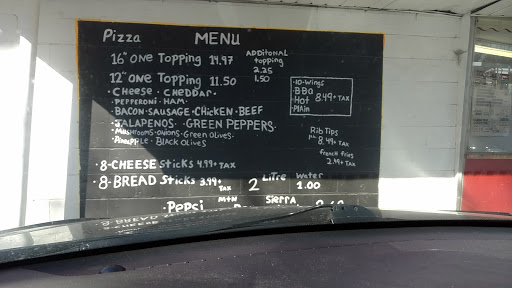 Pizza MENU
16" ONE TOPPING 14.97
ADDITONAL
topping
2.25
12" ONE TOPPING 11.50
1.50
• CHEESE • CHEDDAR •
• PEPPERONI • HAM •
BACON • SAUSAGE • CHICKEN • BEEF
• JALAPENOS • GREEN PEPPERS •
• MUSHROOMS • ONIONS • Green Olives •
Pineapple • Black Olives
-10-Wings
BBQ
Hot 8.49 + TAX
Plain
Rib Tips
8.49 + TAX
French fries
2.49 + TAX
• 8-CHEESE Sticks 4.99 + TAX
• 8-BREAD Sticks 3.99 + TAX
2 Litre
Water
1.00
• Pepsi Mtn Sierra